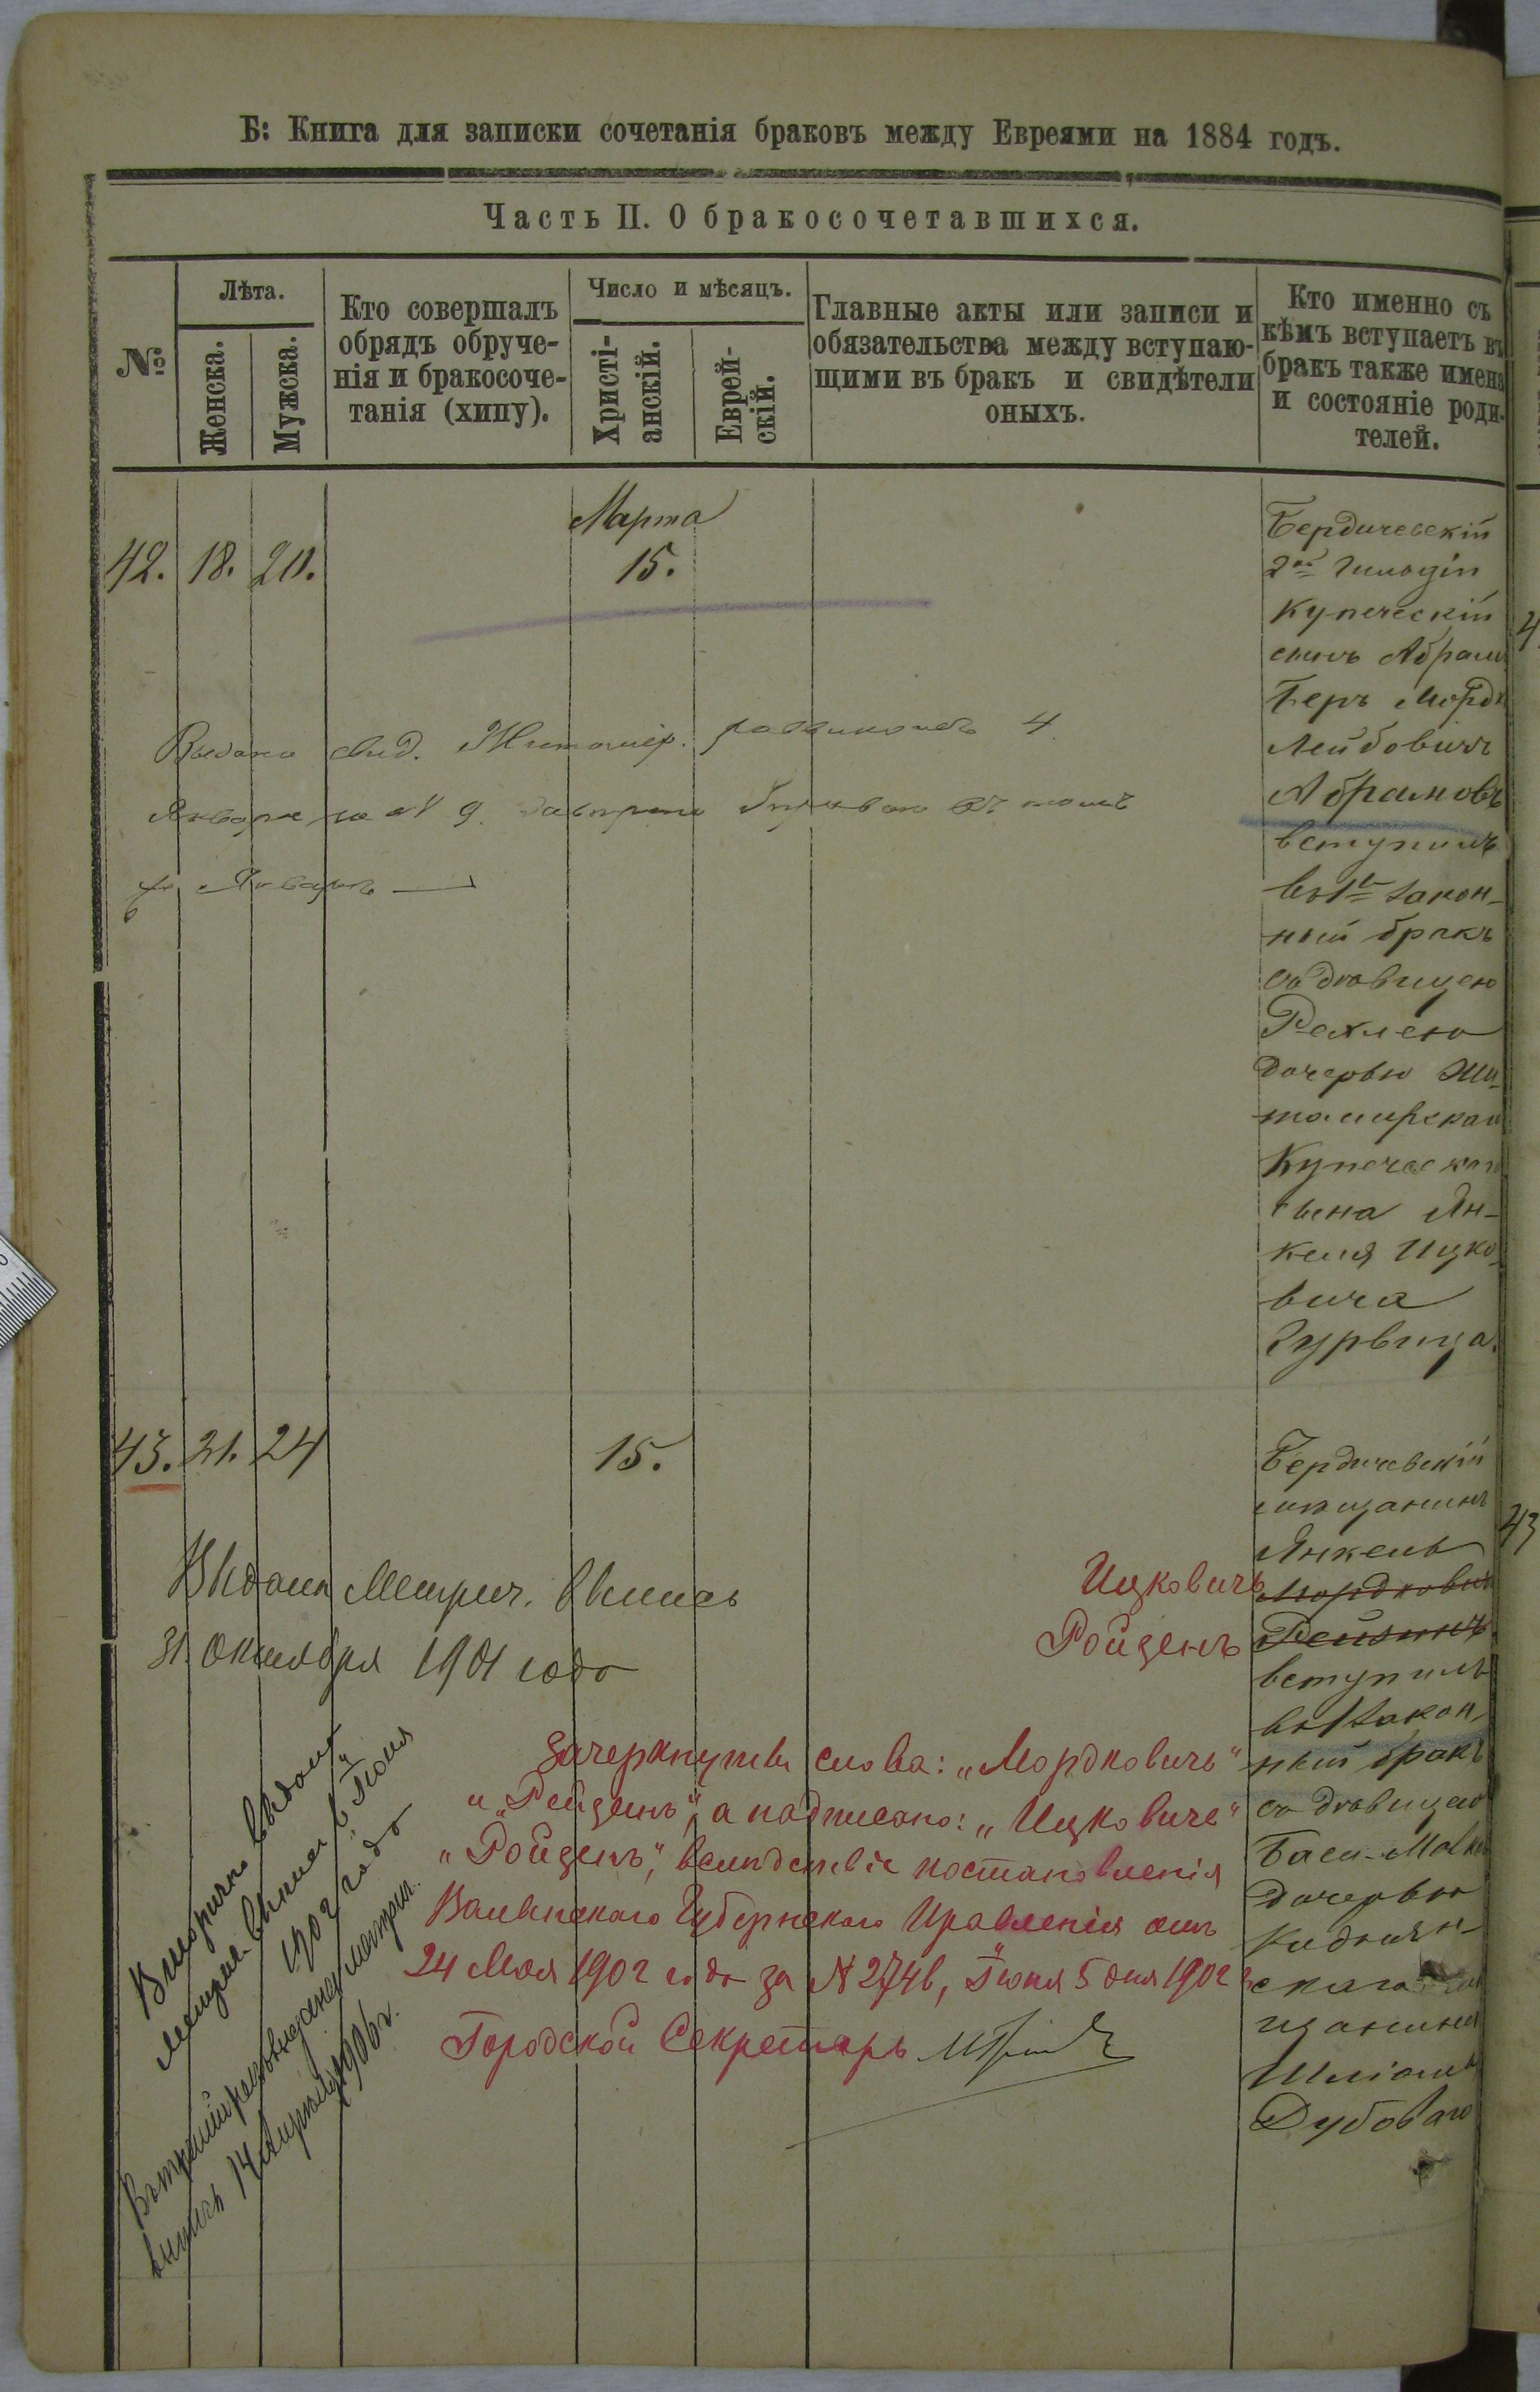 Б: Книга для записки сочетанія браковъ между Евреями на 1884 годъ.
Часть II. О бракосочетавшихся.
№
Лѣта.
Женска.
Мужска.
Кто совершалъ
обрядъ обруче-
нія и бракосоче-
танія (хипу).
Число и мѣсяцъ.
Христі-
анскій.
Еврей-
скій.
Главные акты или записи и
обязательства между вступаю-
щими въ бракъ и свидѣтели
оныхъ.
Кто именно съ
кѣмъ вступаетъ въ
бракъ также имена
и состояніе роди-
телей.
Марта
42. 18. 20. 15.
Бердичевскій
2ой гильдіи
купеческій
сынъ Абрамъ
Беръ Мордк
Лейбовичъ
Абрамовъ
вступилъ
въ 1й закон-
ный бракъ
съ дѣвицею
Рахлею
дочерью Жи-
томирскаго
Купеческаго
сына Ян-
келя Ицко-
вича
Гурвица.
Выдано свид. Житомір. раввиномъ 4
Января за № 9
Январь
43. 21. 24 15.
Бердичевскій
мѣщанинъ
Янкель
Мордковичъ
Рейзинъ
вступилъ
въ 1 закон-
ный бракъ
съ дѣвицею
Баси-Малкою
дочерью
Коднян-
скаго мѣ
щанина
Шліомы
Дубоваго
Ицковичъ
Ройценъ
Выдана Метрич. выпись
31 Октября 1901 года
Зачеркнуты слова: „Мордковичъ"
и „Рейценъ", а надписано: „Ицковичъ"
„Ройценъ", вслѣдствіе постановленія
Волынскаго Губернскаго Правленія отъ
24 Мая 1902 года за № 2746, Іюня 5 дня 1902 г
Городской Секретарь
Вторично выдана
метрич. выпись 6 Іюня
1902 года
Въ третій разъ выдана метрич.
выпись 14 Апрѣля 1906 г.